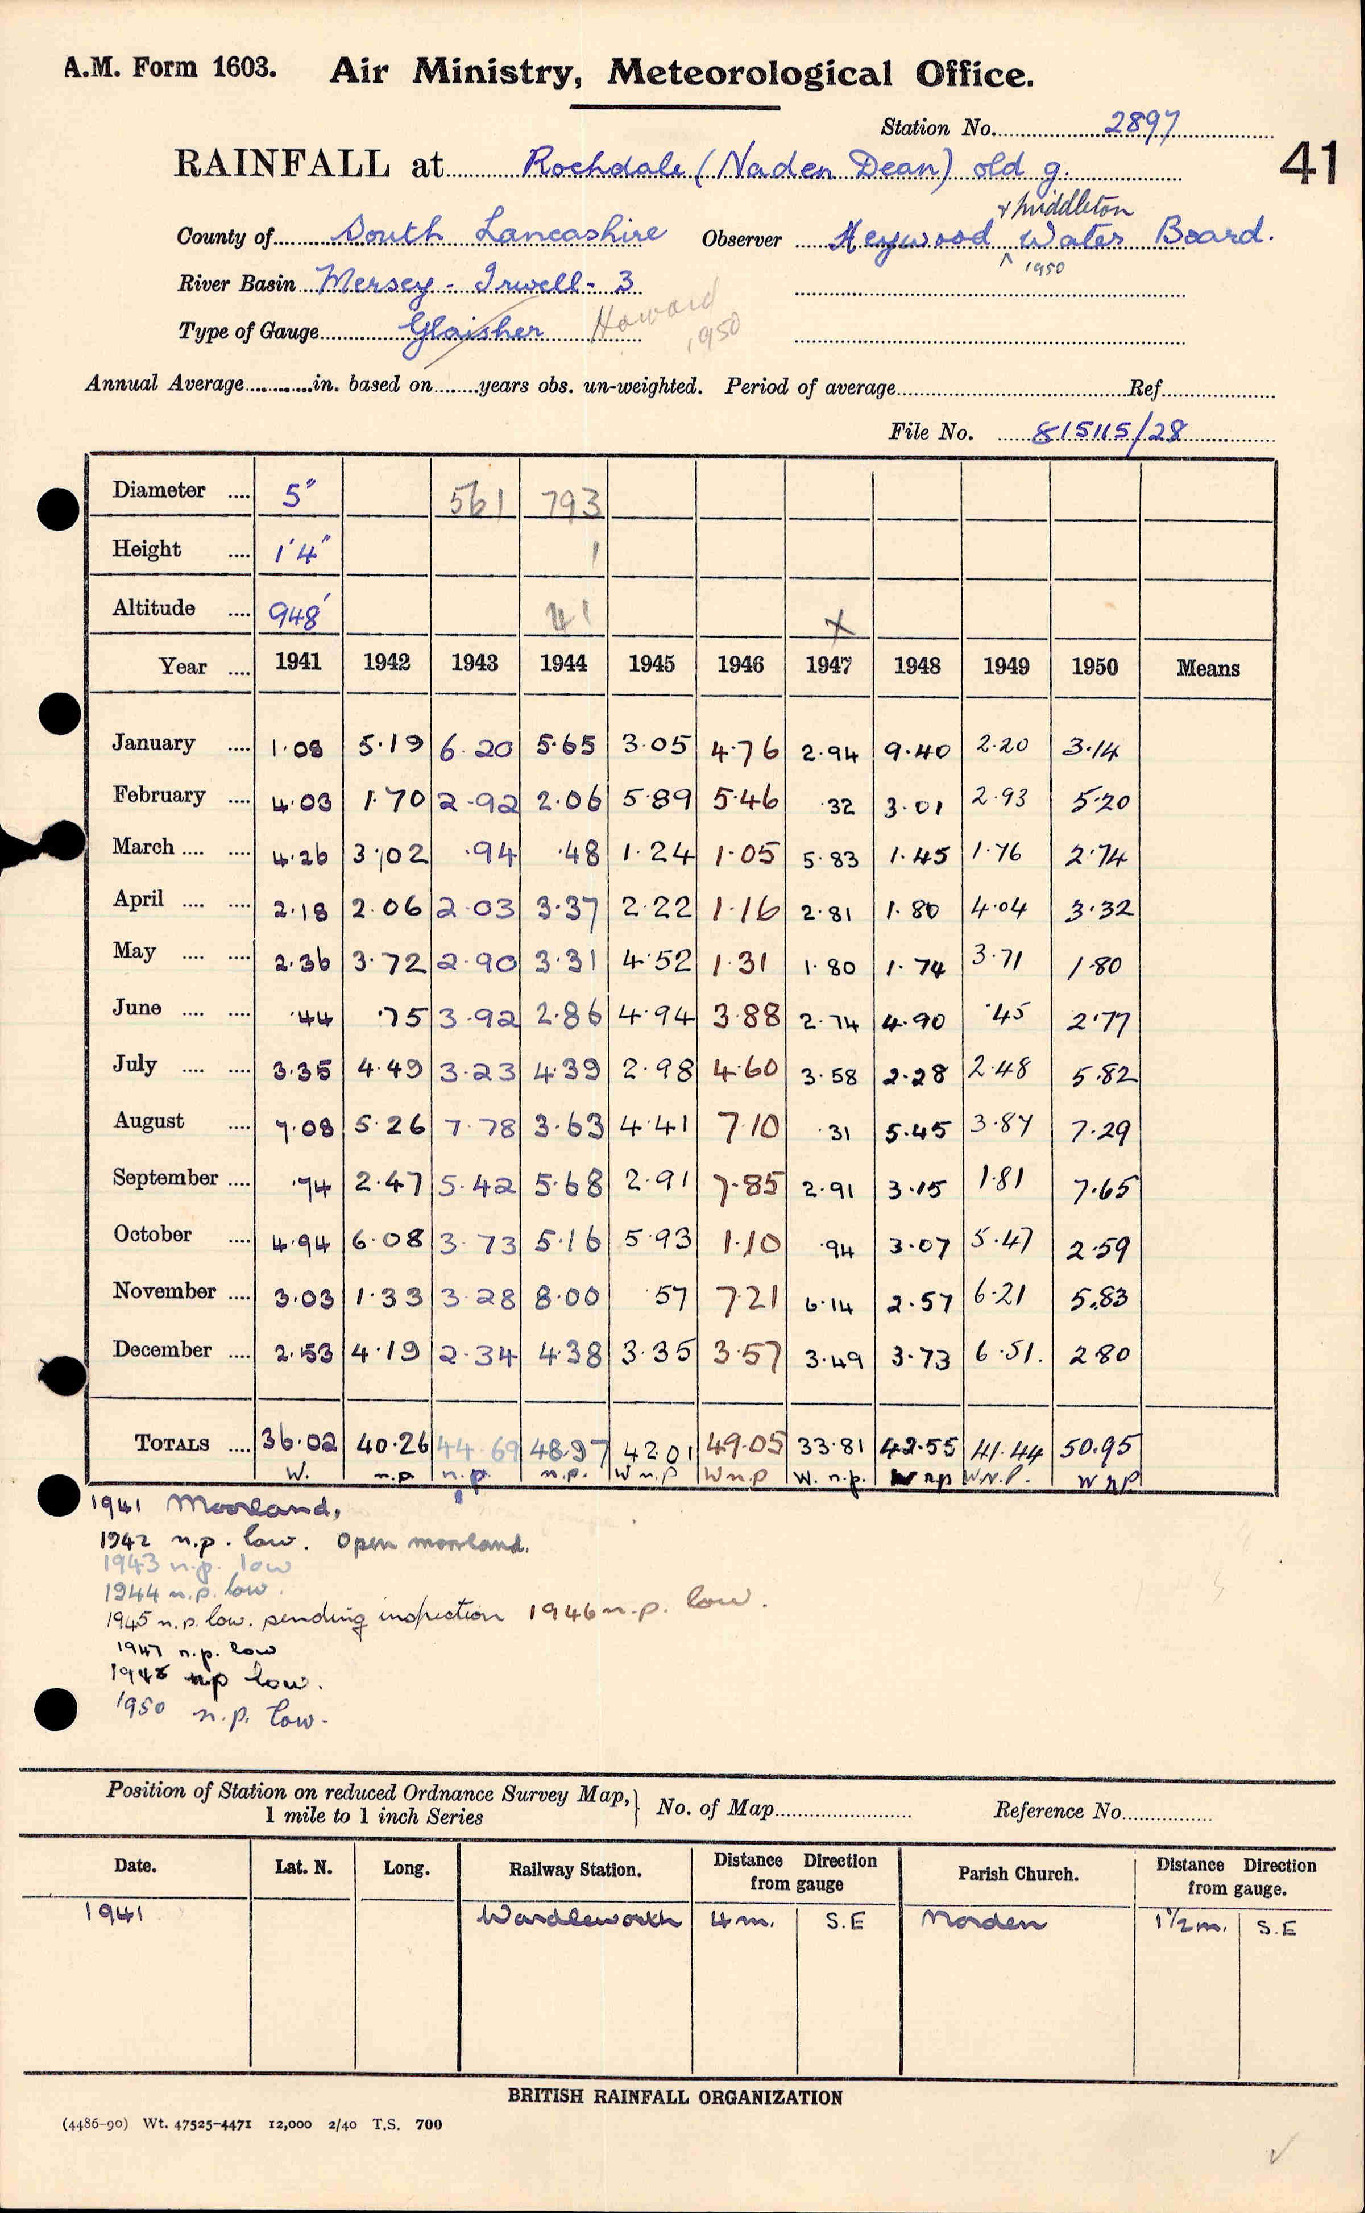 A.M. Form 1603. Air Ministry, Meteorological Office.
Station No. 2897
RAINFALL at Rochdale (Naden Dean) old g. 41
& Middleton
County of South Lancashire Observer Heywood ^ Water Board.
1950
River Basin Mersey - Irwell - 3
Type of Gauge Glaisher Howard 1950
Annual Average in. based on years obs. un-weighted. Period of average Ref.
File No. 815115/28
Diameter .... 5" 561 793
Height .... 1'4" 1
Altitude .... 948' 41 X
Year .... 1941 1942 1943 1944 1945 1946 1947 1948 1949 1950 Means
January .... 1.08 5.19 6.20 5.65 3.05 4.76 2.94 9.40 2.20 3.14
February .... 4.03 1.70 2.92 2.06 5.89 5.46 .32 3.01 2.93 5.20
March .... .... 4.26 3.02 .94 .48 1.24 1.05 5.83 1.45 1.76 2.74
April .... .... 2.18 2.06 2.03 3.37 2.22 1.16 2.81 1.80 4.04 3.32
May .... .... 2.36 3.72 2.90 3.31 4.52 1.31 1.80 1.74 3.71 1.80
June .... .... .44 .75 3.92 2.86 4.94 3.88 2.74 4.90 .45 2.77
July .... .... 3.35 4.49 3.23 4.39 2.98 4.60 3.58 2.28 2.48 5.82
August .... 7.08 5.26 7.78 3.63 4.41 7.10 .31 5.45 3.87 7.29
September .... .74 2.47 5.42 5.68 2.91 7.85 2.91 3.15 1.81 7.65
October .... 4.94 6.08 3.73 5.16 5.93 1.10 .94 3.07 5.47 2.59
November .... 3.03 1.33 3.28 8.00 .57 7.21 6.14 2.57 6.21 5.83
December .... 2.53 4.19 2.34 4.38 3.35 3.57 3.49 3.73 6.51. 2.80
TOTALS .... 36.02 40.26 44.69 48.97 42.01 49.05 33.81 42.55 41.44 50.95
W. n.p n.p. n.p. W n.p W n.p W. n.p. W n.p W.N.P. W n P
1941 Moorland,
1942 n.p. low. Open moorland.
1943 n.p. low
1944 n.p. low.
1945 n.p. low. pending inspection 1946 n.p. low.
1947 n.p. low
1948 np low.
1950 n.p. low.
Position of Station on reduced Ordnance Survey Map,} No. of Map Reference No.
1 mile to 1 inch Series
Date. Lat. N. Long. Railway Station. Distance from gauge Direction Parish Church. Distance from gauge. Direction
1941 Wardleworth 4 m. S.E Norden 1 1/2 m. S.E
BRITISH RAINFALL ORGANIZATION
(4486-90) Wt. 47525-4471 12,000 2/40 T.S. 700